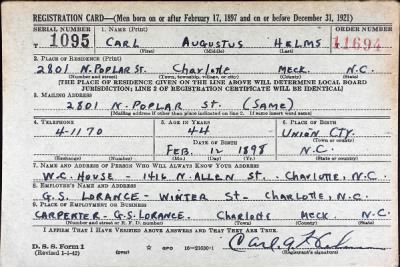 REGISTRATION CARD—(Men born on or after February 17, 1897 and on or before December 31, 1921)
SERIAL NUMBER 1. NAME (Print) ORDER NUMBER
T 1095 CARL AUGUSTUS HELMS 11694
(First) (Middle) (Last)
2. PLACE OF RESIDENCE (Print)
2801 N. POPLAR ST. Charlotte MECK. N.C.
(Number and street) (Town, township, village, or city) (County) (State)
[THE PLACE OF RESIDENCE GIVEN ON THE LINE ABOVE WILL DETERMINE LOCAL BOARD
JURISDICTION; LINE 2 OF REGISTRATION CERTIFICATE WILL BE IDENTICAL]
3. MAILING ADDRESS
2801 N. POPLAR ST. (SAME)
[Mailing address if other than place indicated on line 2. If same insert word same]
4. TELEPHONE 5. AGE IN YEARS 6. PLACE OF BIRTH
4-1170 44 UNION CTY.
DATE OF BIRTH (Town or county)
FEB. 12 1898 N.C.
(Exchange) (Number) (Mo.) (Day) (Yr.) (State or country)
7. NAME AND ADDRESS OF PERSON WHO WILL ALWAYS KNOW YOUR ADDRESS
W.C. HOUSE - 1416 N. ALLEN ST. CHARLOTTE, N.C.
8. EMPLOYER'S NAME AND ADDRESS
G.S. LORANCE - WINTER St - CHARLOTTE, N.C.
9. PLACE OF EMPLOYMENT OR BUSINESS
CARPENTER - G.S. LORANCE. Charlotte MECK. N.C.
(Number and street or R. F. D. number) (Town) (County) (State)
I AFFIRM THAT I HAVE VERIFIED ABOVE ANSWERS AND THAT THEY ARE TRUE.
D. S. S. Form 1
(Revised 1-1-42) GPO 16—21630-1
(Registrant's signature)